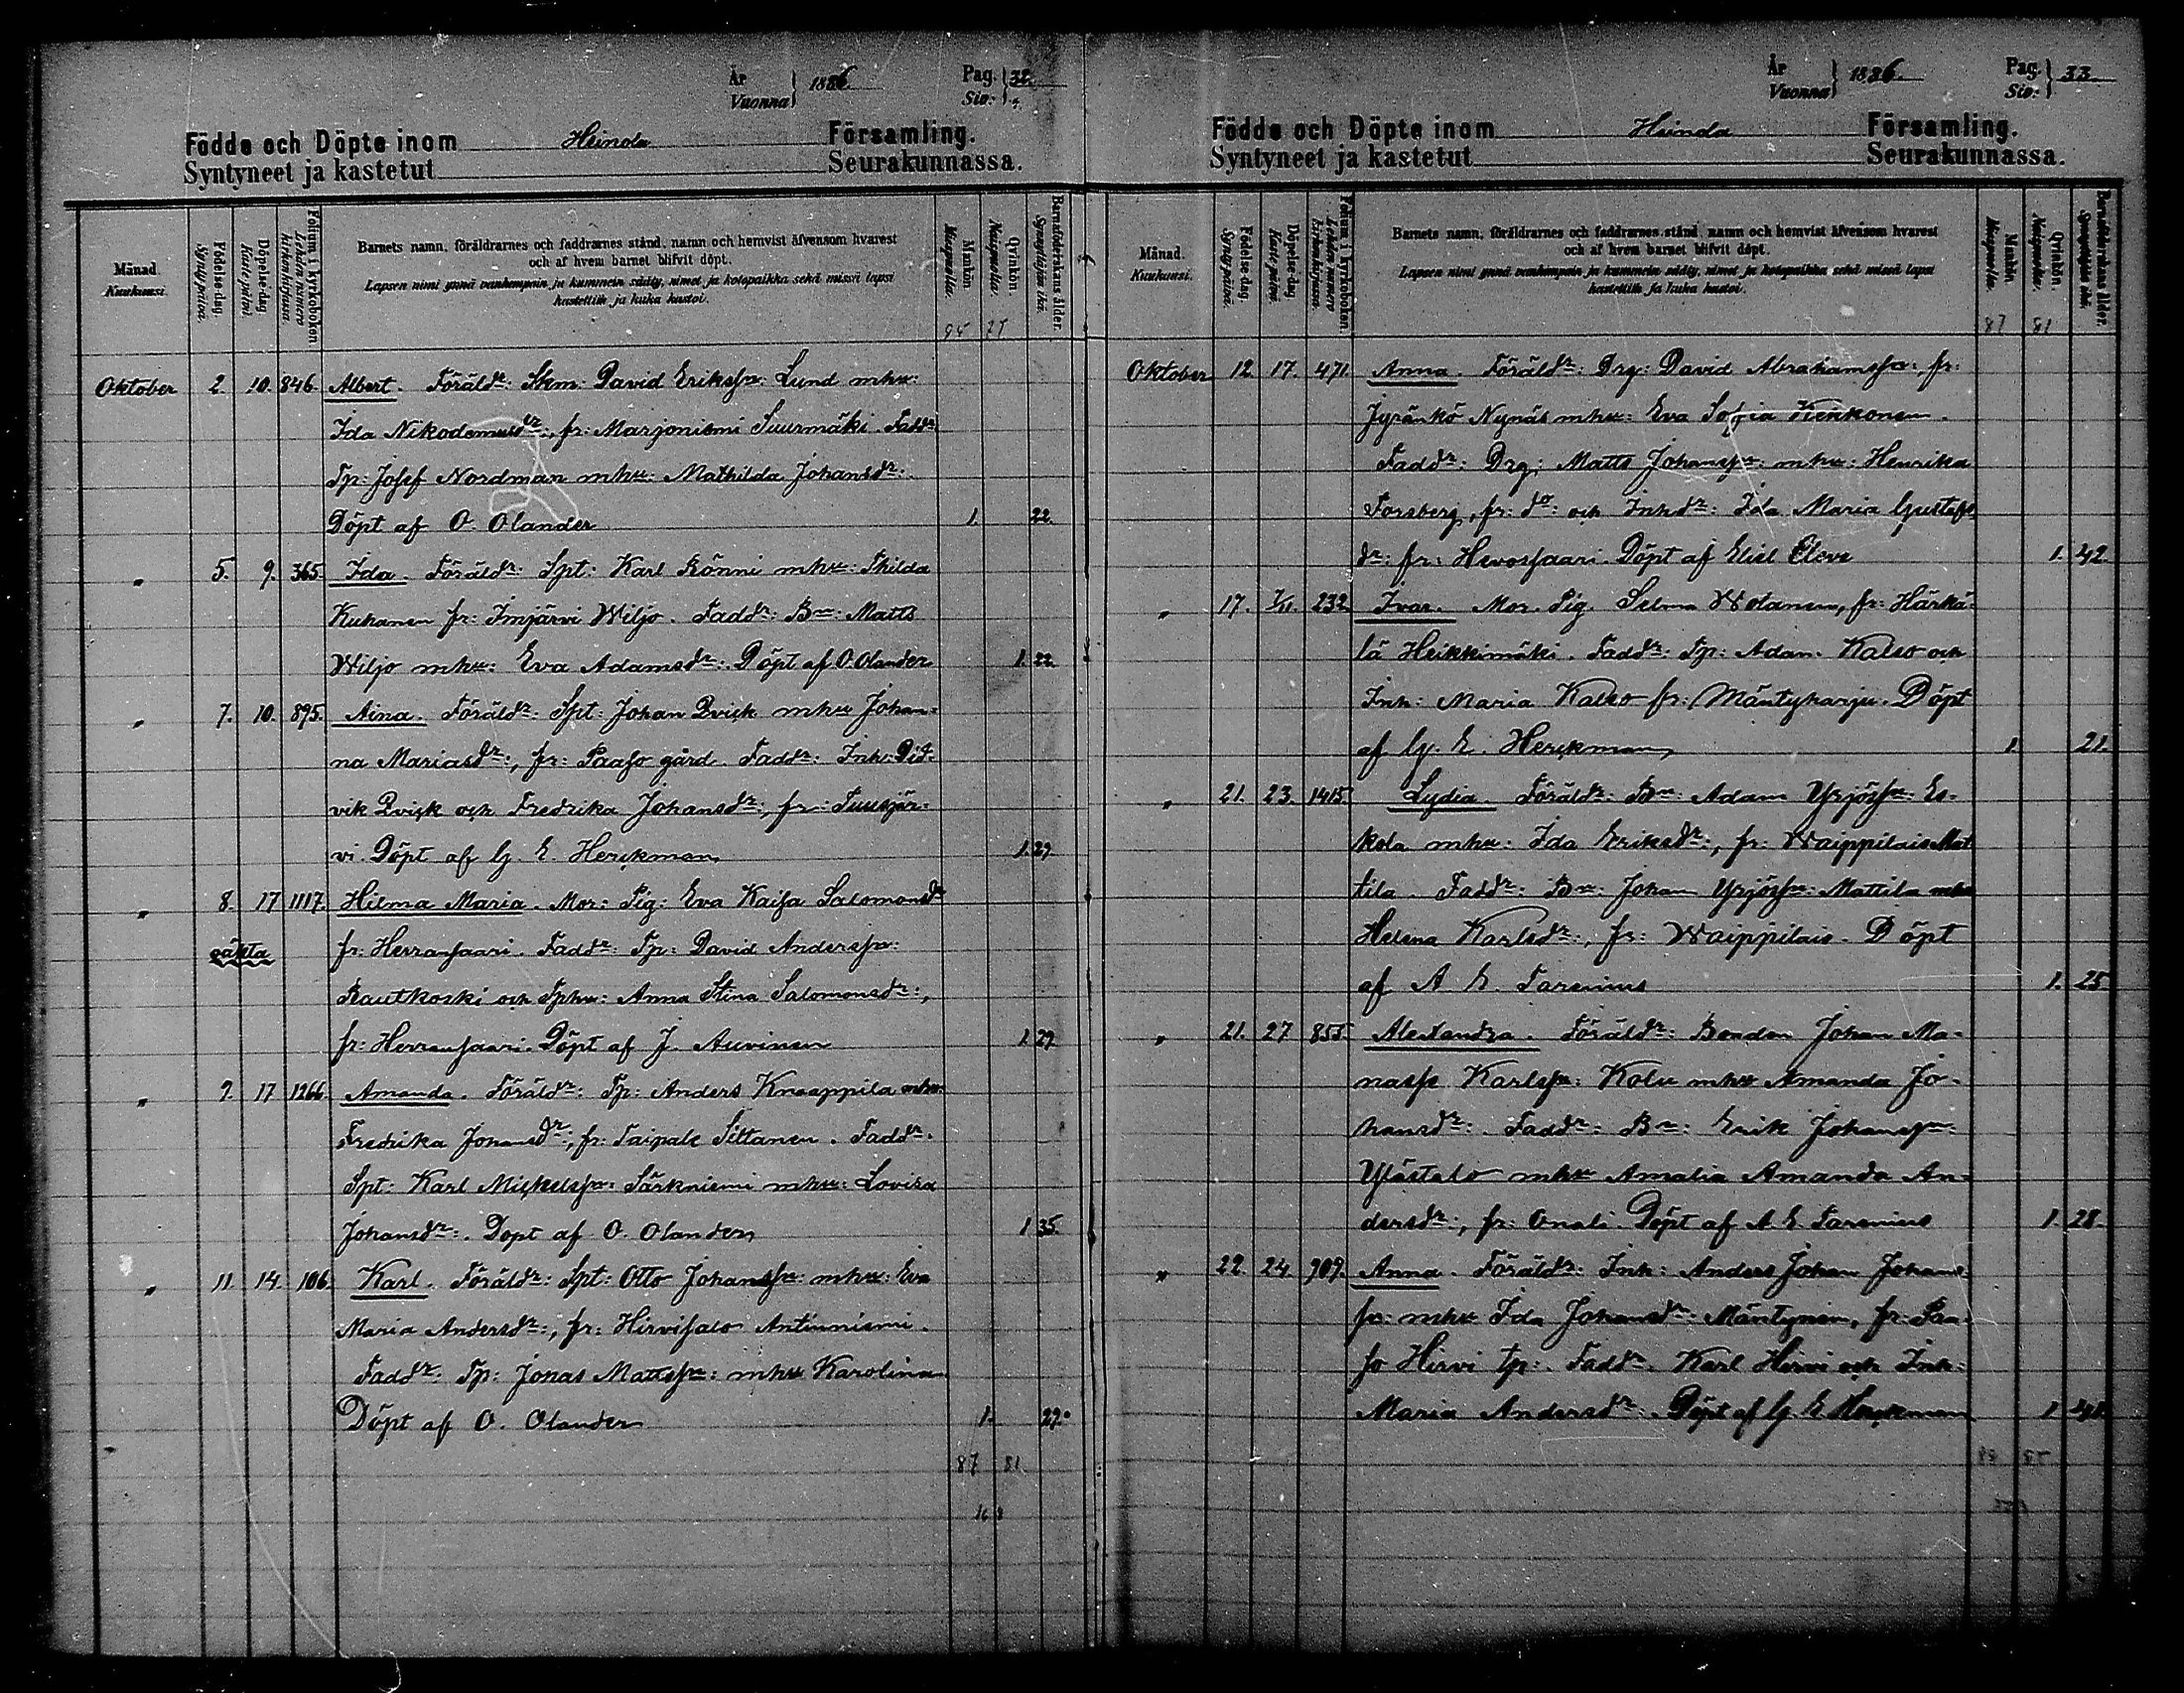 År
Vuonna } 1886. Pag. Siv: } 32.
Födde och Döpte inom Heinola Församling.
Syntyneet ja kastetut Seurakunnassa.
Månad. Kuukausi.
Födelse-dag. Syntypäivä.
Döpelse-dag. Kastepäivä.
Folium i kyrkoboken. Lehden numero kirkonkirjassa.
Barnets namn, föräldrarnes och faddrarnes stånd, namn och hemvist äfvensom hvarest
och af hvem barnet blifvit döpt.
Lapsen nimi ynnä vanhempain ja kummein sääty, nimet ja kotopaikka sekä missä lapsi
kastettiin ja kuka kastoi.
Mankön. Miespuolia.
Qvinkön. Naispuolia.
Barnaföderskans ålder. Synnyttäjän ikä.
Oktober 2. 10. 846. Albert. Föräldr: Skm: David Erikssn: Lund mhu:
Ida Nikodemusdr:, fr: Marjoniemi Suurmäki. Faddr:
Tp: Josef Nordman mhu: Mathilda Johansdr:.
Döpt af O. Olander 1. 22.
" 5. 9. 365. Ida. Föräldr: Spt: Karl Rönni mhu: Thilda
Kukonen fr: Imjärvi Wiljo. Faddr: Bn: Matts
Wiljo mhu: Eva Adamsdr:. Döpt af O. Olander 1. 22.
" 7. 10. 895. Aina. Föräldr: Spt: Johan Qvick mhu Johan-
na Mariasdr:, fr: Paaso gård. Faddr: Inh: Did-
vik Qvick och Fredrika Johansdr:, fr: Tuusjär-
vi. Döpt af G. E. Herckman 1. 29.
" 8. 17. 1117. Hilma Maria. Mor: Pig: Eva Kaisa Salomonsdr
oäkta fr: Herransaari. Faddr: Tp: David Anderssn:
Rautkoski och Tphu: Anna Stina Salomonsdr:,
fr: Herransaari. Döpt af J. Auvinen 1. 29
" 9. 17. 1266. Amanda. Föräldr: Tp: Anders Knaappila mhu:
Fredrika Johansdr:, fr: Taipale Siltanen. Faddr:
Spt: Karl Mickelssn: Särkniemi mhu: Lovisa
Johansdr:. Döpt af O. Olander 1 35.
" 11. 14. 106. Karl. Föräldr: Spt: Otto Johanssn: mhu: Eva
Maria Andersdr:, fr: Hirvisalo Antinniemi.
Faddr: Tp: Jonas Mattssn: mhu Karolina
Döpt af O. Olander 1. 29.
87 81
168
År
Vuonna } 1886. Pag. Siv: } 33
Födde och Döpte inom Heinola Församling.
Syntyneet ja kastetut Seurakunnassa.
Månad. Kuukausi.
Födelse-dag. Syntypäivä.
Döpelse-dag. Kastepäivä.
Folium i kyrkoboken. Lehden numero kirkonkirjassa.
Barnets namn, föräldrarnes och faddrarnes stånd, namn och hemvist äfvensom hvarest
och af hvem barnet blifvit döpt.
Lapsen nimi ynnä vanhempain ja kummein sääty, nimet ja kotopaikka sekä missä lapsi
kastettiin ja kuka kastoi.
Mankön. Miespuolia.
Qvinkön. Naispuolia.
Barnaföderskans ålder. Synnyttäjän ikä.
87 81
Oktober 12 17. 471. Anna. Föräldr: Drg: David Abrahamssn:, fr:
Jyränkö Nynäs mhu: Eva Sofia Kinkonen.
Faddr: Drg: Matts Johanssn: mhu: Henrika
Forsberg, fr: do: och Inhdr: Ida Maria Gustafs
dr: fr: Hevossaari. Döpt af Eliel Cleve 1. 42.
" 17. 232. Ivar. Mor. Pig. Selma Wolanen, fr: Härkä-
lä Heikkimäki. Faddr: Tp: Adam Kalso och
Inh: Maria Kalso fr: Mäntyharju. Döpt
af G. E. Herckman 1 21.
" 21. 23. 1415. Lydia. Föräldr: Bn: Adam Yrjössn: Es-
kola mhu: Ida Eriksdr:, fr: Waippilais Mat
tila. Faddr: Bn: Johan Yrjössn: Mattila mhu
Helena Karlsdr:, fr: Waippilais. Döpt
af A. E. Tarenius 1. 25
" 21. 27 855. Alexandra. Föräldr: Bonden Johan Ma-
nasse Karlssn: Kolu mhu Amanda Jo-
hansdr:. Faddr: Bn: Erik Johanssn:
Ylästalo mhu Amalia Amanda An-
dersdr:, fr: Onali. Döpt af A. E. Tarenius 1. 28.
" 22. 24. 909. Anna. Föräldr: Inh: Anders Johan Johans-
sn: mhu Ida Johansdr: Mäntynen, fr: Paa-
so Hirvi tp:. Faddr. Karl Hirvi och Inh:
Maria Andersdr:. Döpt af G. E Herckman 1